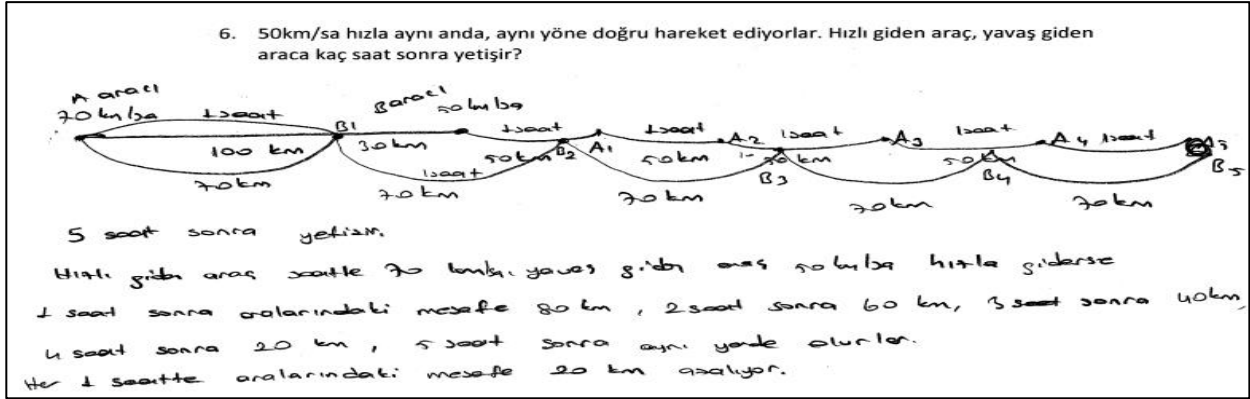 6. 50km/sa hızla aynı anda, aynı yöne doğru hareket ediyorlar. Hızlı giden araç, yavaş giden
araca kaç saat sonra yetişir?
A aracı
70 km/sa
1 saat
B1
B aracı
50 km/sa
1 saat
1 saat
A2
1 saat
A3
1 saat
A4
1 saat
A5
100 km
30 km
50 km
B2
A1
50 km
50 km
B3
50 km
B4
B5
70 km
1 saat
70 km
70 km
70 km
70 km
5 saat sonra yetişir.
Hızlı giden araç saatte 70 km/sa, yavaş giden araç 50 km/sa hızla giderse
1 saat sonra aralarındaki mesafe 80 km, 2 saat sonra 60 km, 3 saat sonra 40km,
4 saat sonra 20 km, 5 saat sonra aynı yerde olurlar.
Her 1 saatte aralarındaki mesafe 20 km azalıyor.